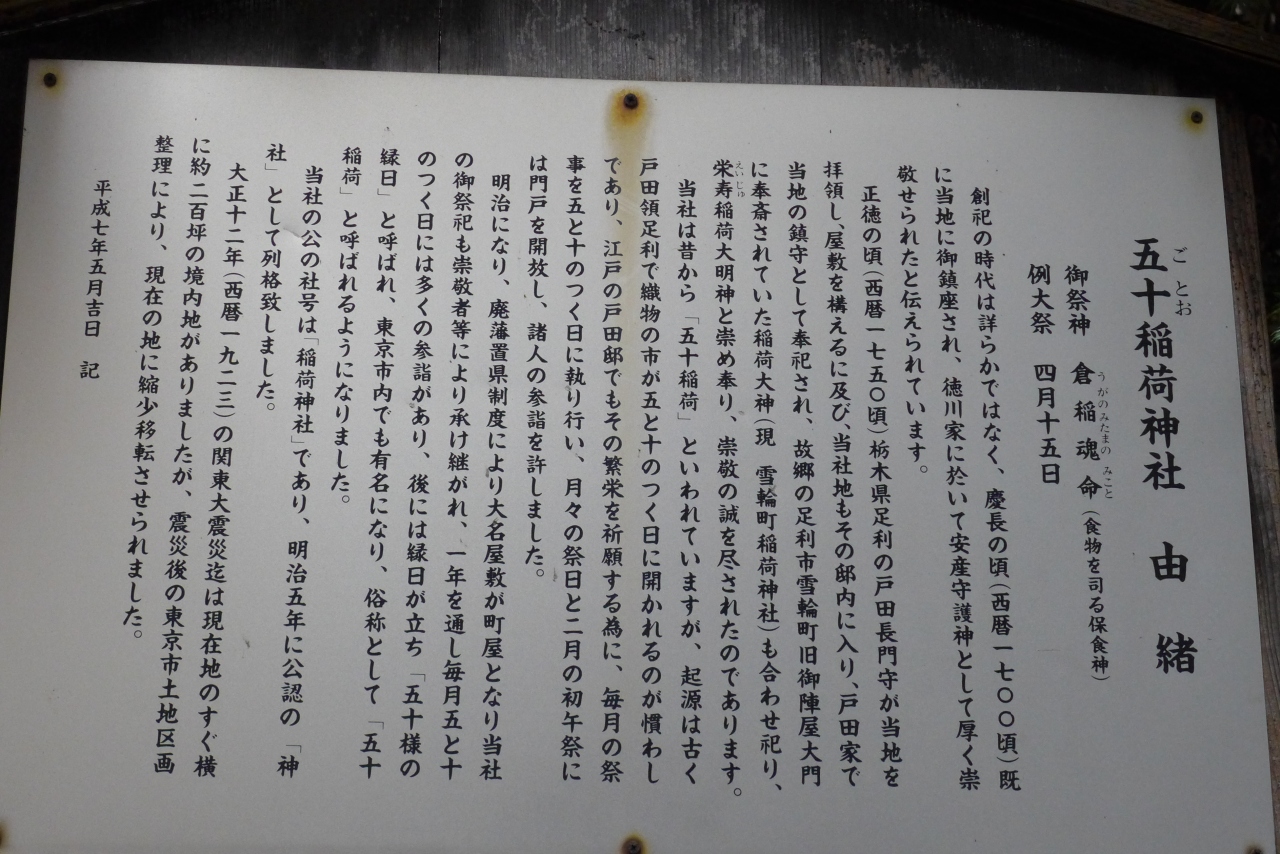 五十稲荷神社　由　緒
ごとお
御祭神　倉稲魂命（食物を司る保食神）
うがのみたまの みこと
例大祭　四月十五日
創祀の時代は詳らかではなく、慶長の頃（西暦一七〇〇頃）既
に当地に御鎮座され、徳川家に於いて安産守護神として厚く崇
敬せられたと伝えられています。
正徳の頃（西暦一七五〇頃）栃木県足利の戸田長門守が当地を
拝領し、屋敷を構えるに及び、当社地もその邸内に入り、戸田家で
当地の鎮守として奉祀され、故郷の足利市雪輪町旧御陣屋大門
に奉斎されていた稲荷大神（現　雪輪町稲荷神社）も合わせ祀り、
栄寿稲荷大明神と崇め奉り、崇敬の誠を尽されたのであります。
えいじゅ
当社は昔から「五十稲荷」といわれていますが、起源は古く
戸田領足利で織物の市が五と十のつく日に開かれるのが慣わし
であり、江戸の戸田邸でもその繁栄を祈願する為に、毎月の祭
事を五と十のつく日に執り行い、月々の祭日と二月の初午祭に
は門戸を開放し、諸人の参詣を許しました。
明治になり、廃藩置県制度により大名屋敷が町屋となり当社
の御祭祀も崇敬者等により承け継がれ、一年を通し毎月五と十
のつく日には多くの参詣があり、後には縁日が立ち「五十様の
縁日」と呼ばれ、東京市内でも有名になり、俗称として「五十
稲荷」と呼ばれるようになりました。
当社の公の社号は「稲荷神社」であり、明治五年に公認の「神
社」として列格致しました。
大正十二年（西暦一九二三）の関東大震災迄は現在地のすぐ横
に約二百坪の境内地がありましたが、震災後の東京市土地区画
整理により、現在の地に縮少移転させられました。
平成七年五月吉日　記